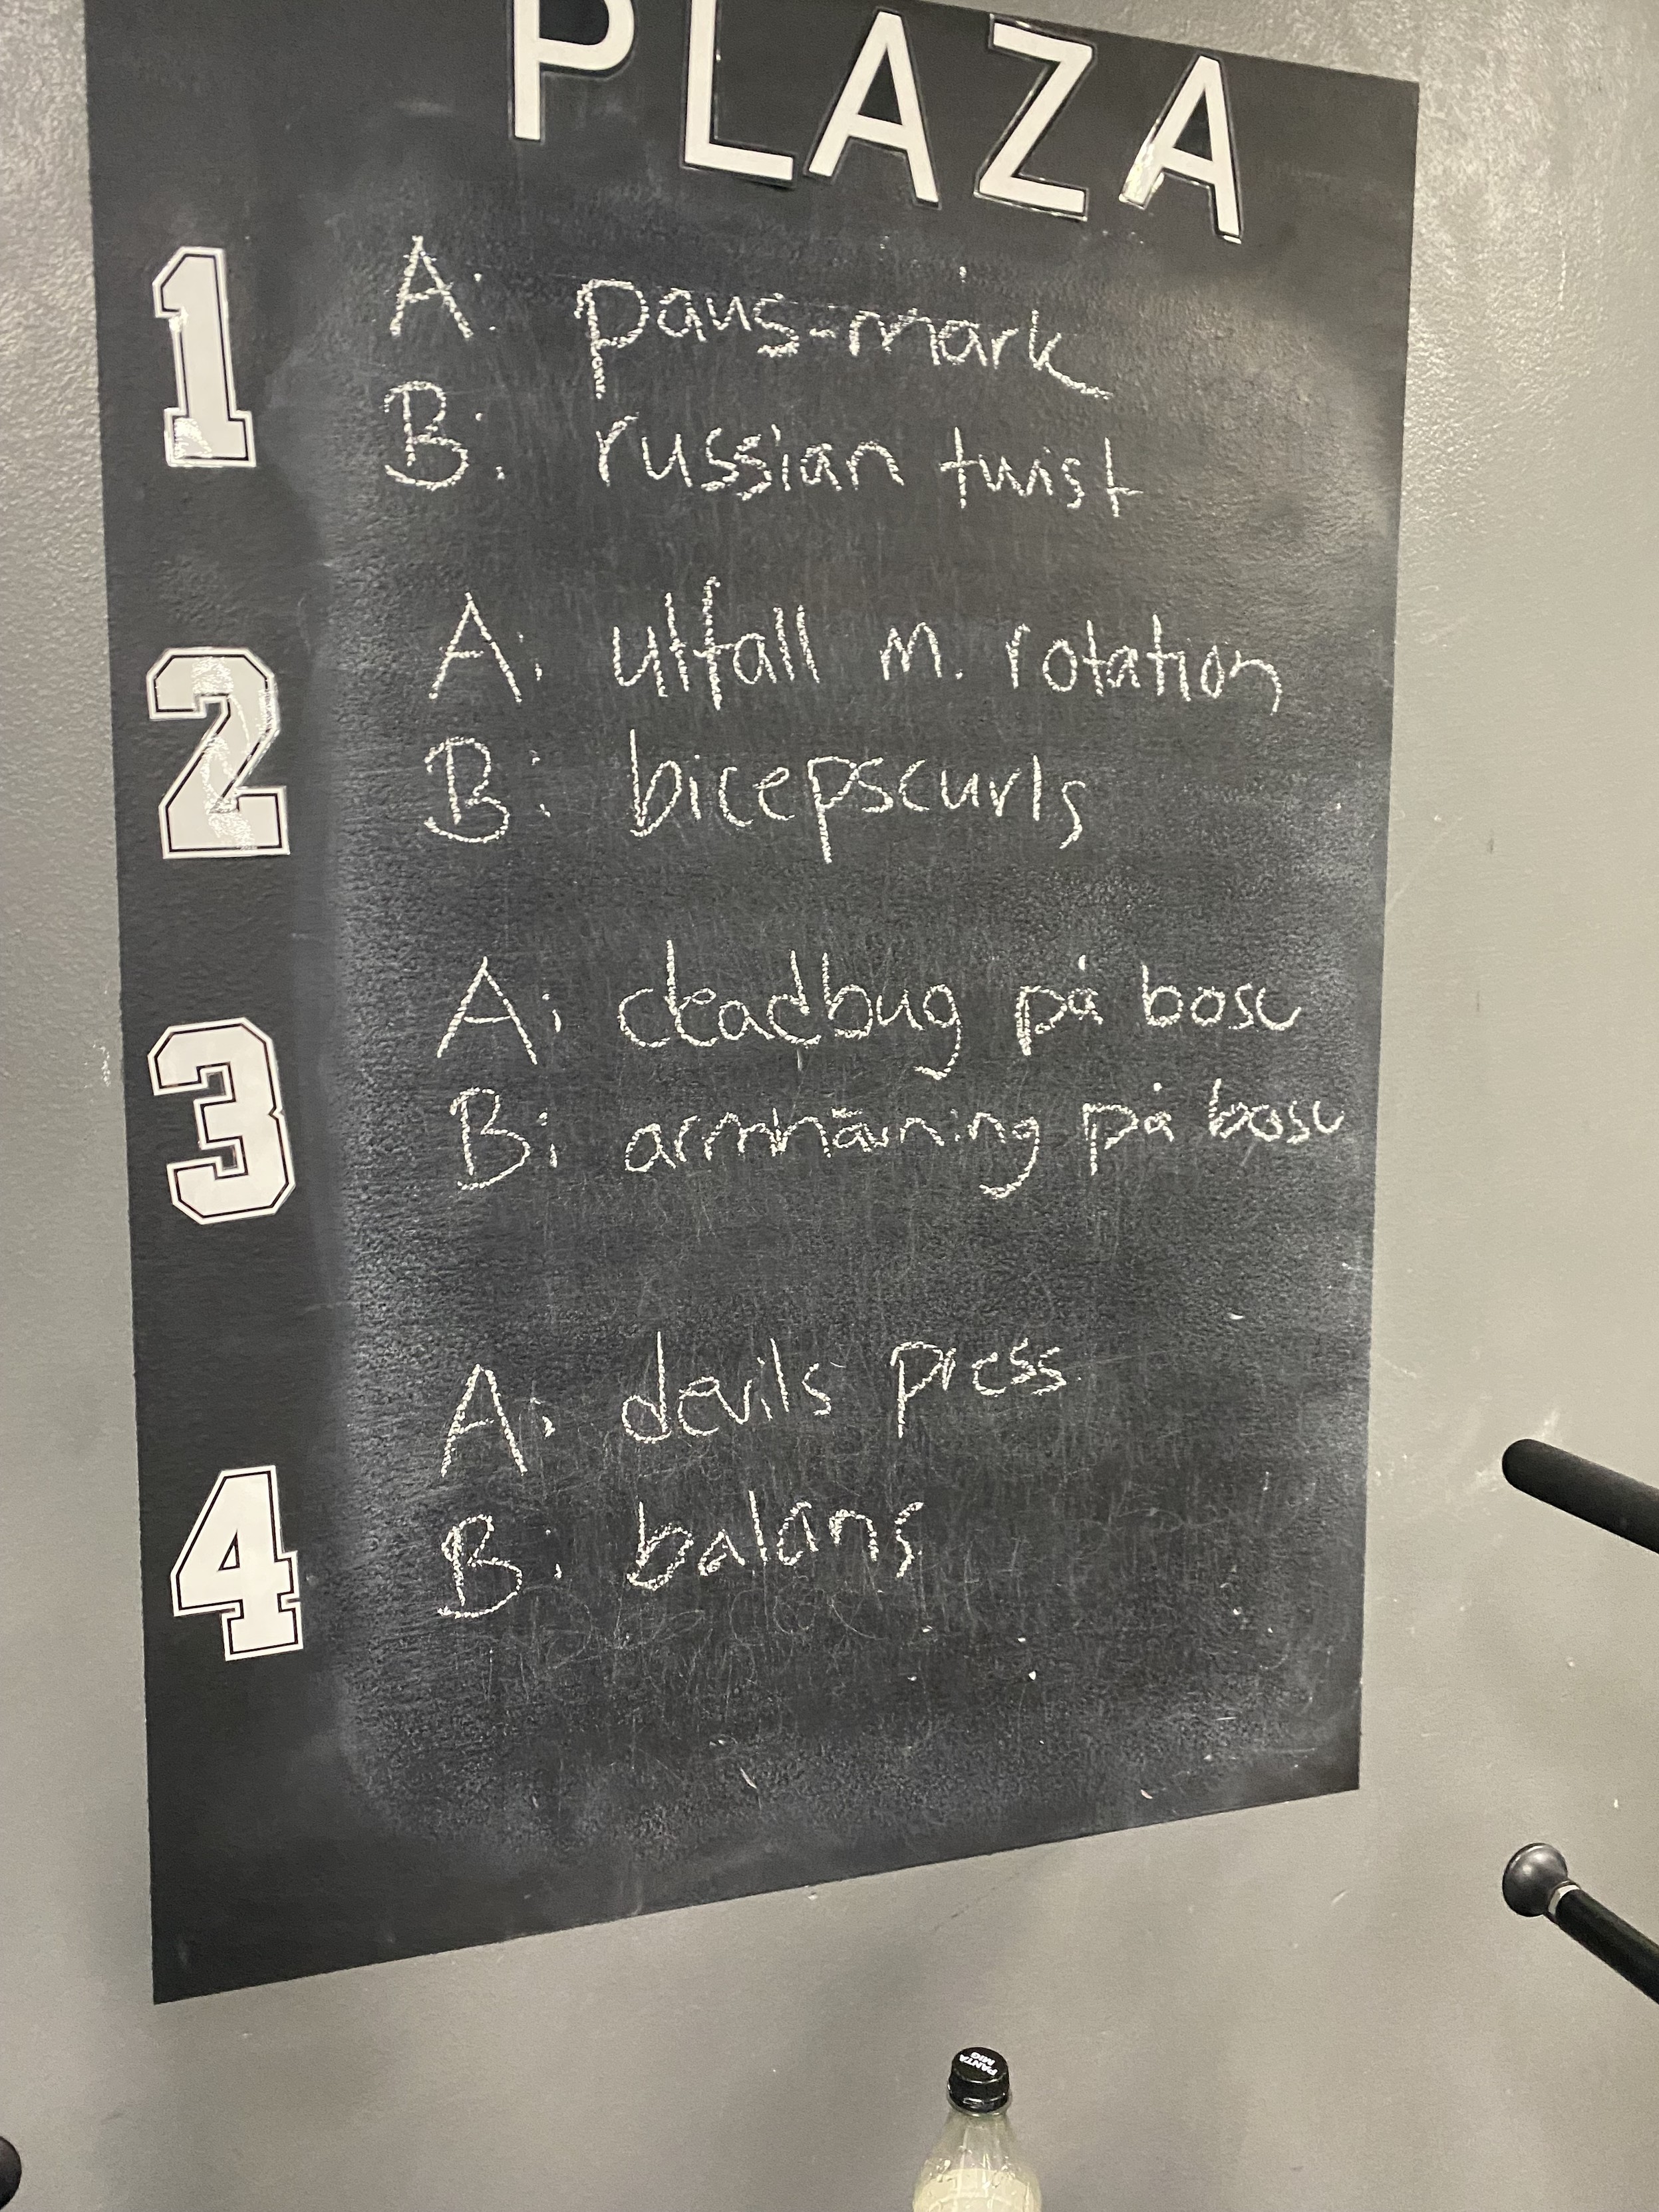 PLAZA
1
A: paus-mark
B: russian twist
2
A: utfall m. rotation
B: bicepscurls
3
A: deadbug på bosu
B: armhävning på bosu
4
A: devils press
B: balans
PANTA
MIG